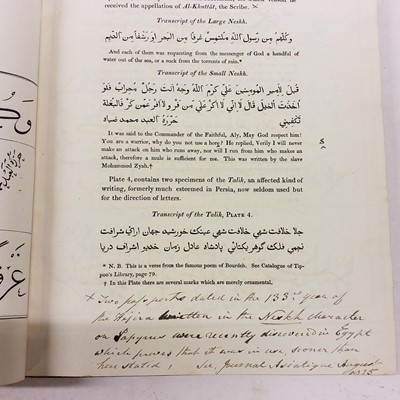 received the appellation of Al-Khottát, the Scribe.
Transcript of the Large Neskh.
وكلهم من رسول الله ملتمس غرفا من البحر او رشفا من الديم
And each of them was requesting from the messenger of God a handful of
water out of the sea, or a suck from the torrents of rain.*
Transcript of the Small Neskh.
قيل لامير المومنين علي كرم الله وجهه انت رجل محراب فلو
اتخذت الخيل قال لاني لا اكر علي من فر ولا افر عمن كر فالبغلة
تكفيني حررة العبد محمد ضياه
It was said to the Commander of the Faithful, Aly, May God respect him!
You are a warrior, why do you not use a horg? He replied, Verily I will never
make an attack on him who runs away, nor will I run from him who makes an
attack, therefore a mule is sufficient for me. This was written by the slave
Mohammed Zyah.†
Plate 4, contains two specimens of the Talik, an affected kind of
writing, formerly much esteemed in Persia, now seldom used but
for the direction of letters.
Transcript of the Talik, PLATE 4.
جلا خلاقت شهي عينك خورشيد جهان اراي شرافت
نجمي فلك گوهريكتاي پادشاه عادل زمان خديو اشراف دريا
* N. B. This is a verse from the famous poem of Bourdeh. See Catalogue of Tip-
poo's Library, page 79.
† In this Plate there are several marks which are merely ornamental.
+ Two passports dated in the 133rd year of
the Hajira written in the Neskh character
on Papyrus were recently discovered in Egypt
which proves that it was in use, sooner than
here stated; See Journal Asiatique August